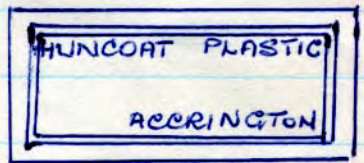 HUNCOAT PLASTIC
ACCRINGTON